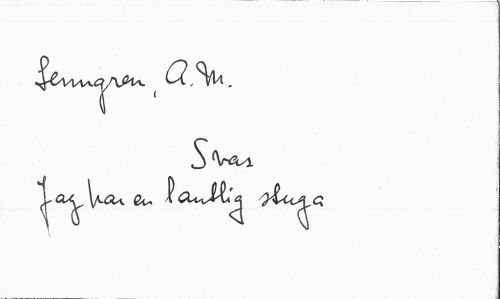 Lenngren, A.M.
Svar
Jag har en lantlig stuga